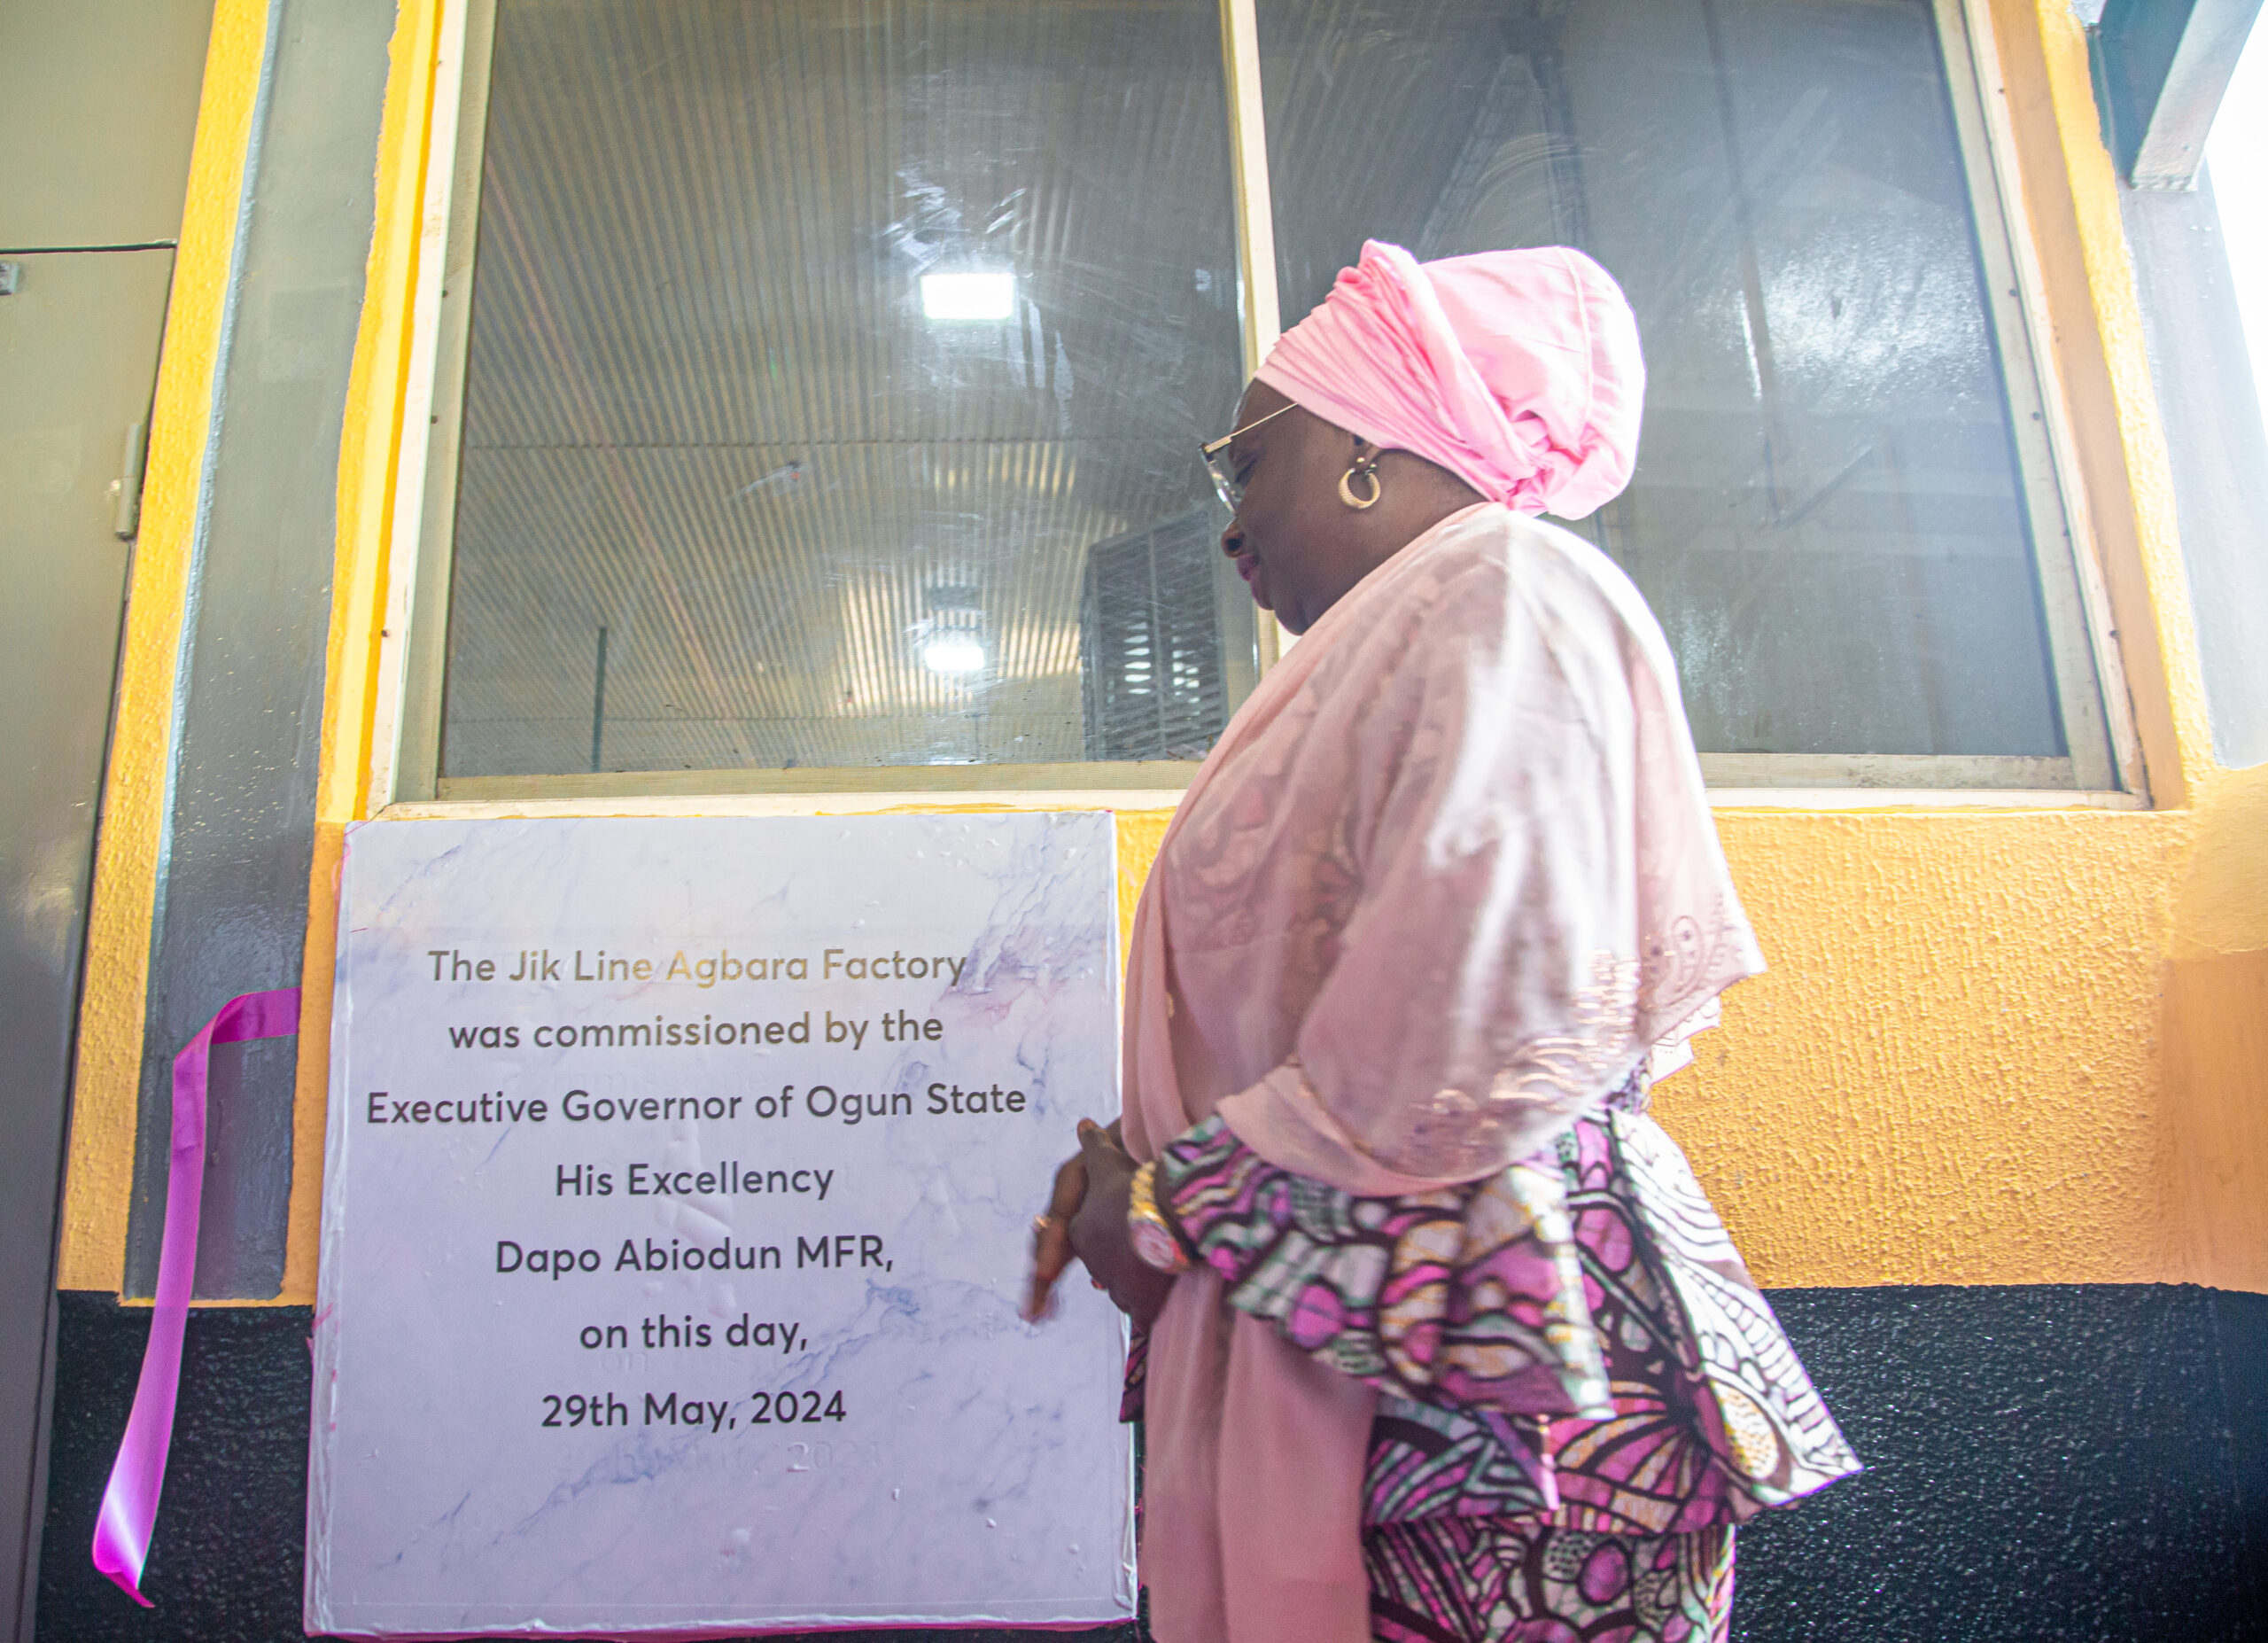 The Jik Line Agbara Factory
was commissioned by the
Executive Governor of Ogun State
His Excellency
Dapo Abiodun MFR,
on this day,
29th May, 2024